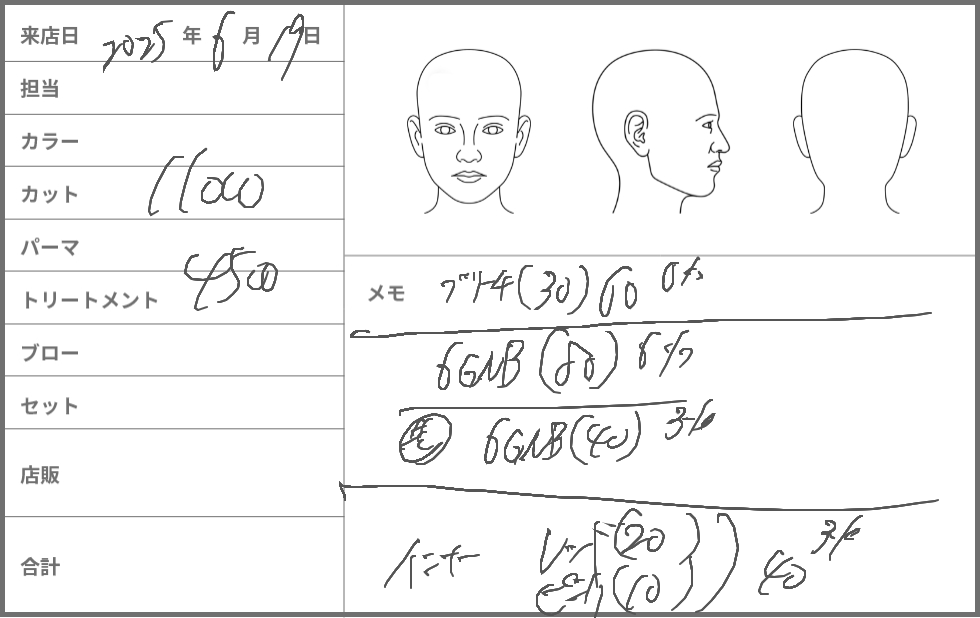 来店日 2025 年 6 月 19 日
担当
カラー
カット 11000
パーマ
トリートメント 4500
ブロー
セット
店販
合計
メモ ブリーチ (30) 60 6%
6GNB (80) 6%
6GNB (40) 3%
インナー (20) 40 3%
(10)